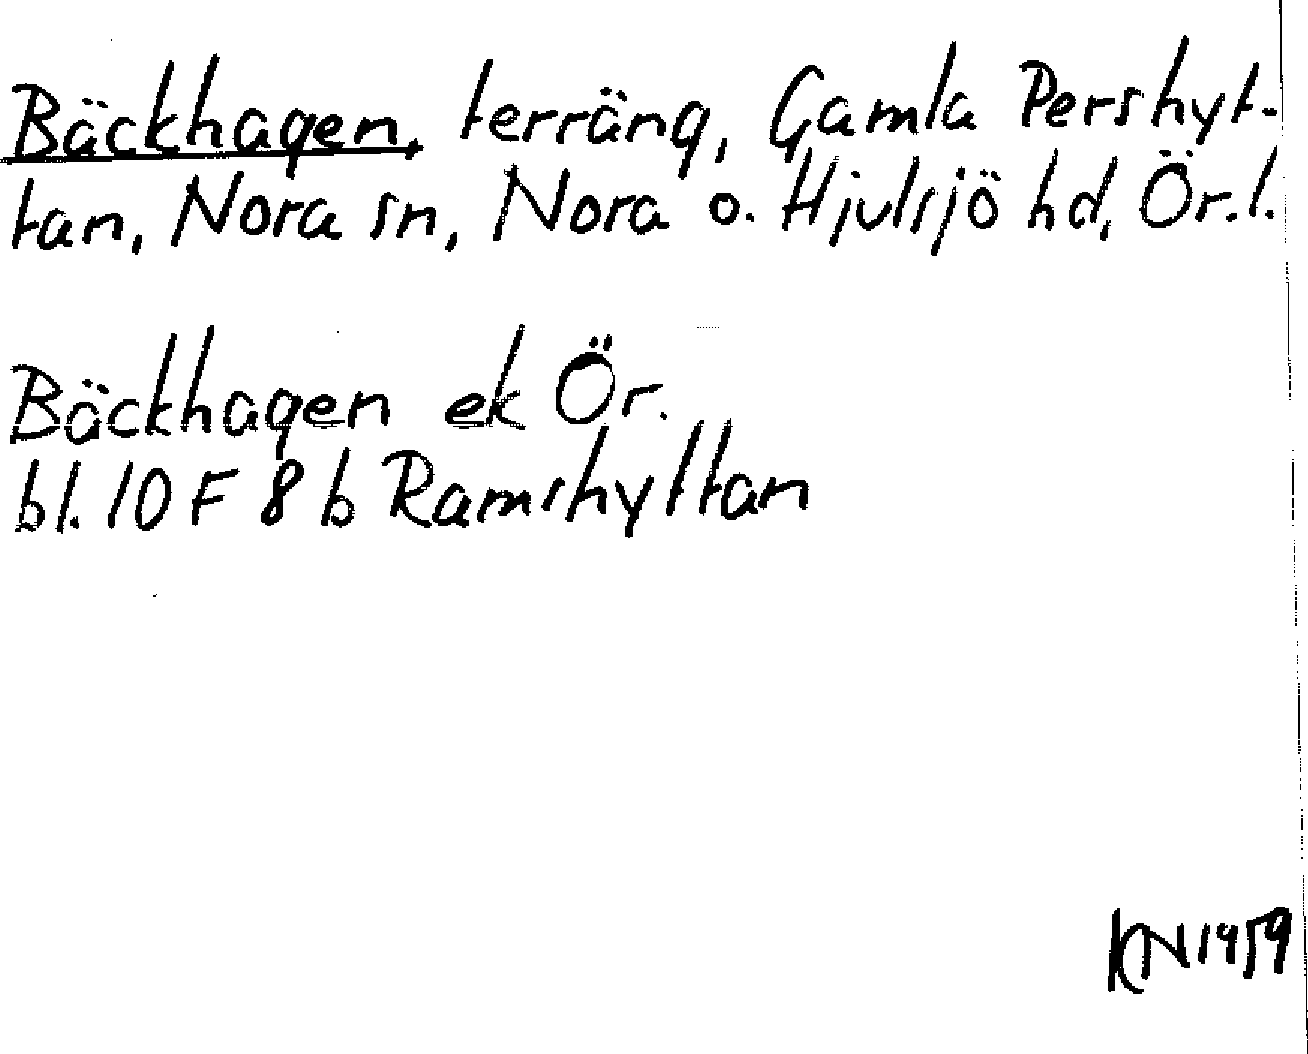 Bäckhagen, terräng, Gamla Pershyt-
tan, Nora sn, Nora o. Hjulsjö hd, Ör.l.
Bäckhagen ek Ör.
bl. 10 F 8 b Ramshyttan
KN 1959